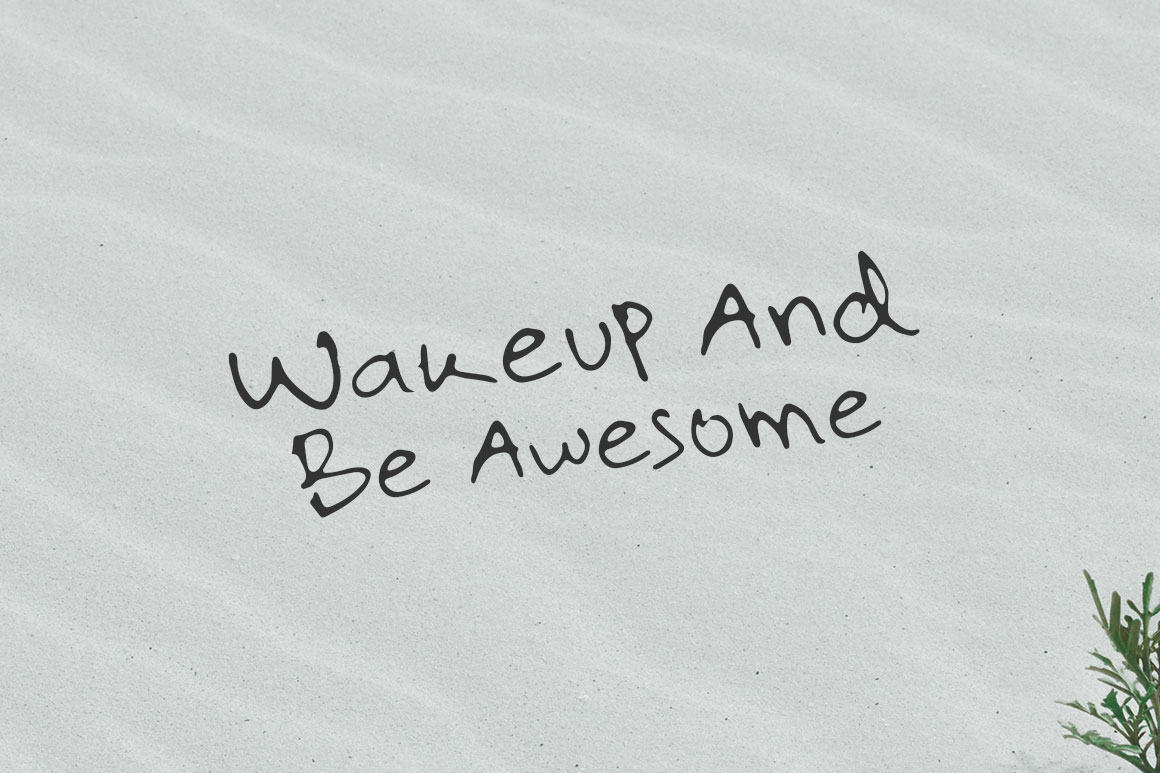 Wakeup And
Be Awesome